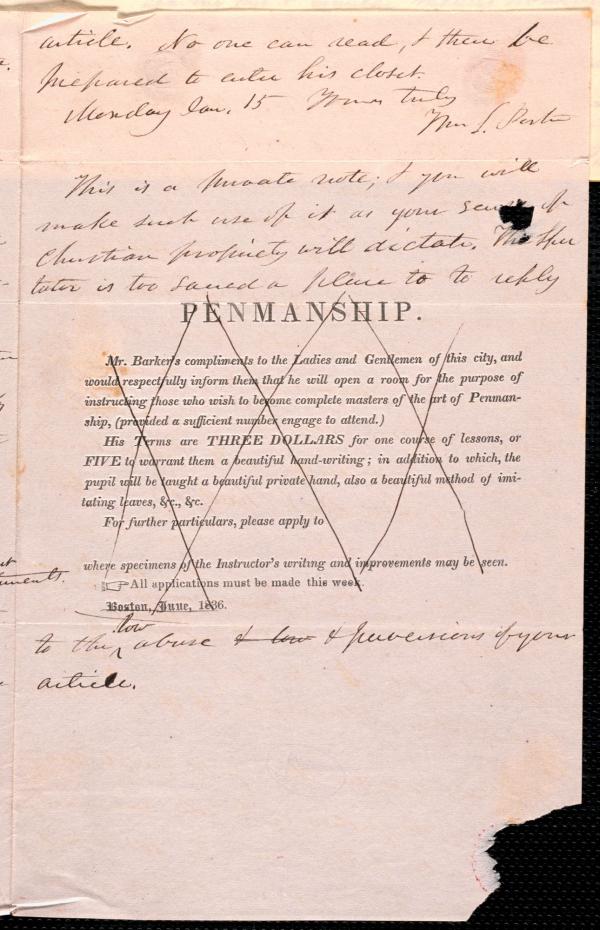 article. No one can read, & then be
prepared to enter his closet.
Monday Jan. 15 Yours truly
Wm L. Porter
This is a private note; & you will
make such use of it as your sense of
Christian propriety will dictate. The Spec
tator is too sacred a place to to reply
PENMANSHIP.
Mr. Barker's compliments to the Ladies and Gentlemen of this city, and
would respectfully inform them that he will open a room for the purpose of
instructing those who wish to become complete masters of the art of Penman-
ship, (provided a sufficient number engage to attend.)
His Terms are THREE DOLLARS for one course of lessons, or
FIVE to warrant them a beautiful hand-writing; in addition to which, the
pupil will be taught a beautiful private hand, also a beautiful method of imi-
tating leaves, &c., &c.
For further particulars, please apply to
where specimens of the Instructor's writing and improvements may be seen.
☞All applications must be made this week.
Boston, June, 1836.
low
to the abuse & low & perversions of your
article.